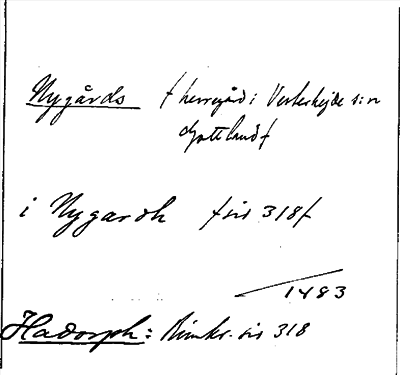 Nygårds f herregård i Vesterhejde s:n
Gottland f
i Nygardh f sis 318 f
1483
Hadorph: Rimkr. sis 318